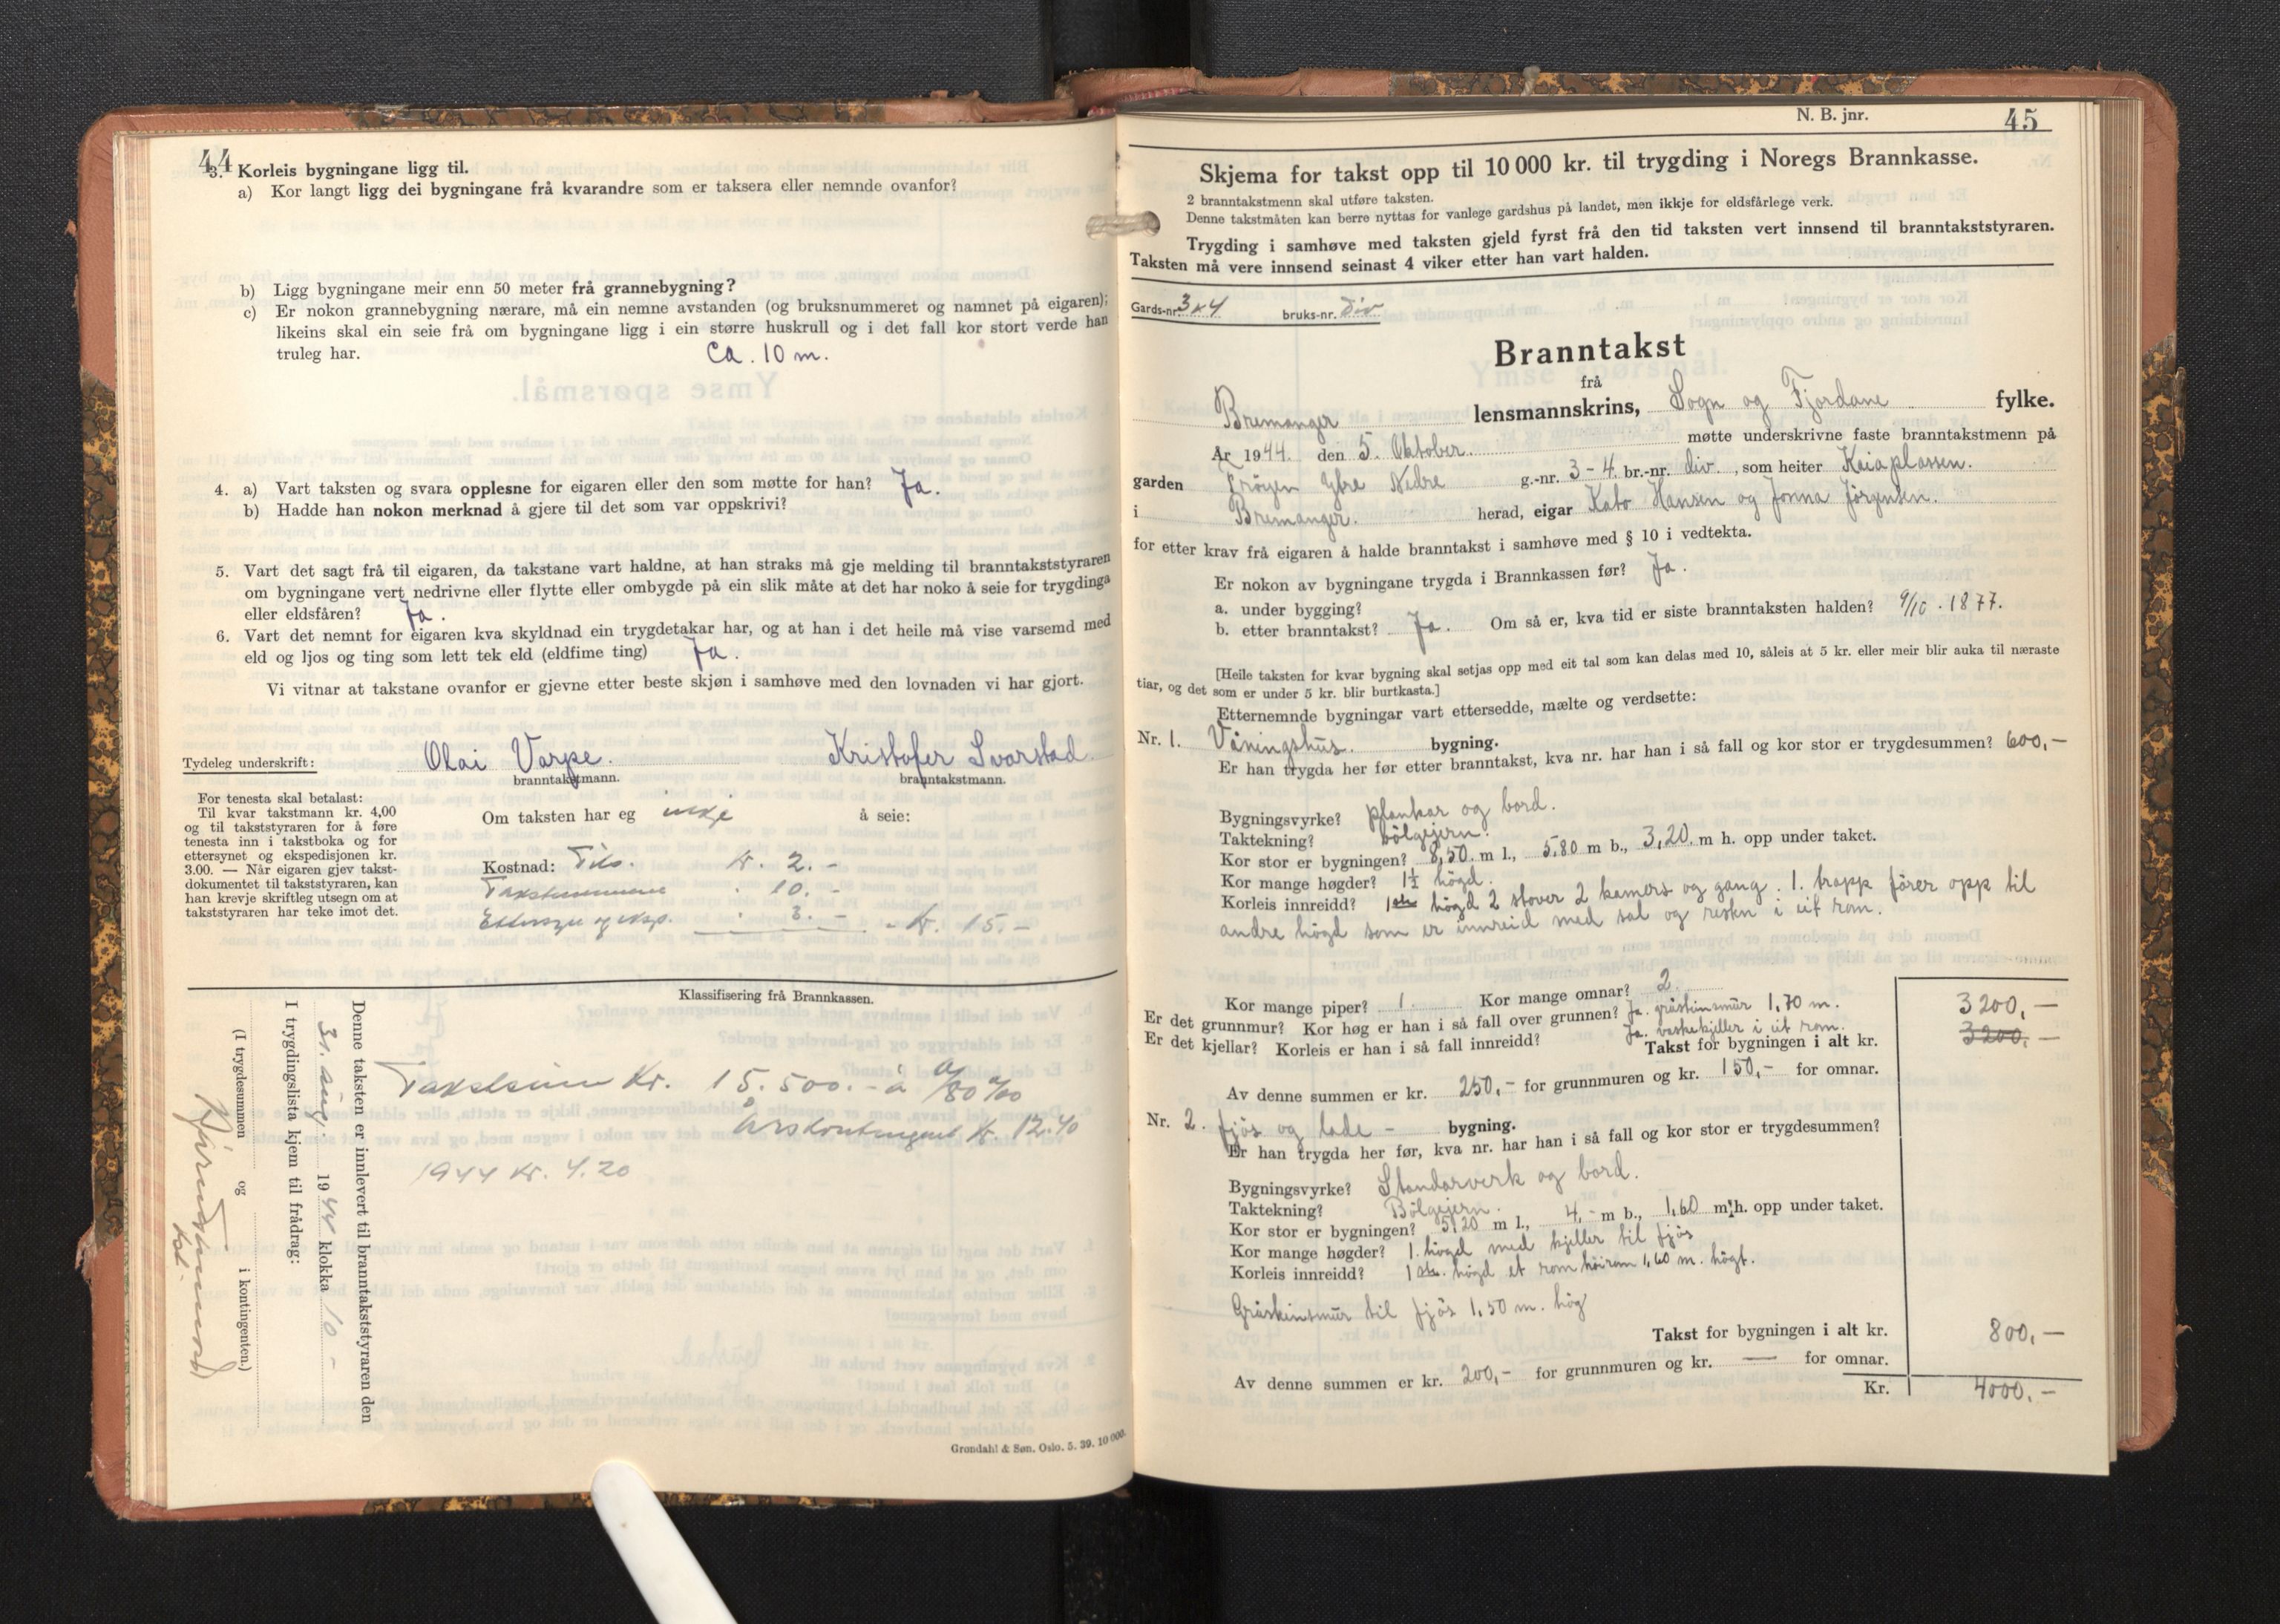 44
3. Korleis bygningane ligg til.
a) Kor langt ligg dei bygningane frå kvarandre som er taksera eller nemnde ovanfor?
b) Ligg bygningane meir enn 50 meter frå grannebygning?
c) Er nokon grannebygning nærare, må ein nemne avstanden (og bruksnummeret og namnet på eigaren);
likeins skal ein seie frå om bygningane ligg i ein større huskrull og i det fall kor stort verde han
truleg har. Ca. 10 m.
4. a) Vart taksten og svara opplesne for eigaren eller den som møtte for han? Ja.
b) Hadde han nokon merknad å gjere til det som var oppskrivi?
5. Vart det sagt frå til eigaren, da takstane vart haldne, at han straks må gje melding til branntakststyraren
om bygningane vert nedrivne eller flytte eller ombygde på ein slik måte at det har noko å seie for trygdinga
eller eldsfåren? Ja.
6. Vart det nemnt for eigaren kva skyldnad ein trygdetakar har, og at han i det heile må vise varsemd med
eld og ljos og ting som lett tek eld (eldfime ting) Ja.
Vi vitnar at takstane ovanfor er gjevne etter beste skjøn i samhøve med den lovnaden vi har gjort.
Tydeleg underskrift: Olai Varpe. Kristofer Svarstad.
branntakstmann. branntakstmann.
For tenesta skal betalast:
Til kvar takstmann kr. 4,00
og til takststyraren for å føre
tenesta inn i takstboka og for
ettersynet og ekspedisjonen kr.
3.00. — Når eigaren gjev takst-
dokumentet til takststyraren, kan
han krevje skriftleg utsegn om at
takststyraren har teke imot det.
Om taksten har eg inkje å seie:
Kostnad: Tils. kr. 2.-
Takstmennene " 10.-
Ettersyn og eksp. " 3.- - kr. 15.-
Klassifisering frå Brannkassen.
Takstsum kr. 15.500.- à
Årskontingent kr. 12.40
1944 kr. 4.20
Denne taksten er innlevert til branntakststyraren den
31. aug. 1944 klokka 10 -
I trygdingslista kjem til frådrag:
(I trygdesummen og i kontingenten.)
Grøndahl & Søn. Oslo. 5. 39. 10 000.
N. B. jnr. 45
Skjema for takst opp til 10 000 kr. til trygding i Noregs Brannkasse.
2 branntakstmenn skal utføre taksten.
Denne takstmåten kan berre nyttas for vanlege gardshus på landet, men ikkje for eldsfårlege verk.
Trygding i samhøve med taksten gjeld fyrst frå den tid taksten vert innsend til branntakststyraren.
Taksten må vere innsend seinast 4 viker etter han vart halden.
Gards-nr. 3 x 4 bruks-nr. Div
Branntakst
frå
Bremanger lensmannskrins, Sogn og Fjordane fylke.
År 1944. den 5. Oktober. møtte underskrivne faste branntakstmenn på
garden Frøyen Ybre Nedre g.-nr. 3-4. br.-nr. div., som heiter Kaiaplassen.
i Bremanger. herad, eigar Kato Hansen og Jonna Jörgensen.
for etter krav frå eigaren å halde branntakst i samhøve med § 10 i vedtekta.
Er nokon av bygningane trygda i Brannkassen før? Ja.
a. under bygging?
b. etter branntakst? Ja. Om så er, kva tid er siste branntaksten halden? 9/10. 1877.
[Heile taksten for kvar bygning skal setjas opp med eit tal som kan delas med 10, såleis at 5 kr. eller meir blir auka til næraste
tiar, og det som er under 5 kr. blir burtkasta.]
Etternemnde bygningar vart ettersedde, mælte og verdsette:
Nr. 1. Våningshus. bygning.
Er han trygda her før etter branntakst, kva nr. har han i så fall og kor stor er trygdesummen? 600,-
Bygningsvyrke? plankar og bord.
Taktekning? bölgejern.
Kor stor er bygningen? 8,50. m l., 5,80 m b., 3,20. m h. opp under taket.
Kor mange høgder? 1½ högd.
Korleis innreidd? 1ste högd 2 stover 2 kamers og gang. 1. trapp förer opp til
andre högd som er innreid med sal og resten i eit rom.
Kor mange piper? 1. Kor mange omnar? 2.
Er det grunnmur? Kor høg er han i så fall over grunnen? Ja. gråsteinsmur 1,70 m. 3200,-
Er det kjellar? Korleis er han i så fall innreidd? Ja. vaskekjeller i eit rom. 3200,-
Takst for bygningen i alt kr.
Av denne summen er kr. 250,- for grunnmuren og kr. 150,- for omnar.
Nr. 2. fjös og lade - bygning.
Er han trygda her før, kva nr. har han i så fall og kor stor er trygdesummen?
Bygningsvyrke? Standarverk og bord.
Taktekning? Bölgejern.
Kor stor er bygningen? 5,20 m l., 4,- m b., 1,60 m h. opp under taket.
Kor mange høgder? 1. högd med kjeller til fjös
Korleis innreidd? 1ste. högd et rom höirom 1,60 m. högt.
Gråsteinsmur til fjös 1,50 m. hög
Takst for bygningen i alt kr. 800,-
Av denne summen er kr. 200,- for grunnmuren og kr. — for omnar.
Kr. 4000,-